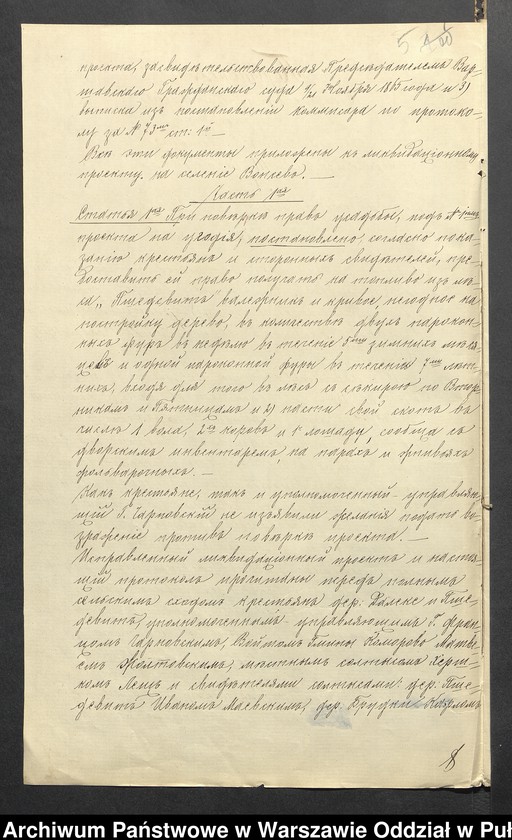 проекта, засвидѣтельствованная Предсѣдателемъ Вар-
шавскаго Гражданскаго суда 9/21 Ноября 1865 года и 3)
выписка изъ постановленій комисара по протоко-
лу за № 73
Всѣ эти документы приложены къ ликвидаціонному
проекту на селеніе
Часть 1ая
Статья 1ая При повѣркѣ правъ усадьбъ, подъ №
проекта на угодія, постановлено, согласно пока-
занію крестьянъ и стороннихъ свидѣтелей, пре-
доставить ей право получать на топливо изъ лѣ-
са „Пшедевитъ валежникъ и кривое, негодное на
постройку дерево, въ количествѣ двухъ парокон-
ныхъ фуръ въ недѣлю въ теченіе 5ти зимнихъ мѣся-
цевъ и одной пароконной фуры въ теченіи 7ми лѣт-
нихъ, входя для того въ лѣсъ съ секирою по Втор-
никамъ и Пятницамъ и 2) пасти свой скотъ въ
числѣ 1 вола, 2хъ коровъ и 1 лошади, сообща съ
дворскимъ инвентаремъ, на парахъ и жнивьяхъ
фольварочныхъ. —
Какъ крестьяне, такъ и уполномоченный-управляю-
щій Г. Чарновскій не изъявили желанія подать во-
зраженіе противъ повѣрки проекта. —
Исправленный ликвидаціонный проектъ и настоя-
щій протоколъ прочитаны предъ полнымъ
сельскимъ сходомъ крестьянъ дер: и Пше-
девитъ, уполномоченнымъ-управляющимъ Г. Фран-
цомъ Чарновскимъ, Войтомъ Гмины Коморово Матвѣ-
емъ Жолтовскимъ, мѣстнымъ солтысомъ
и свидѣтелями солтысами: дер: Пше-
девитъ Иваномъ Маевскимъ, дер. Карломъ
Archiwum Państwowe w Warszawie Oddział w Puł